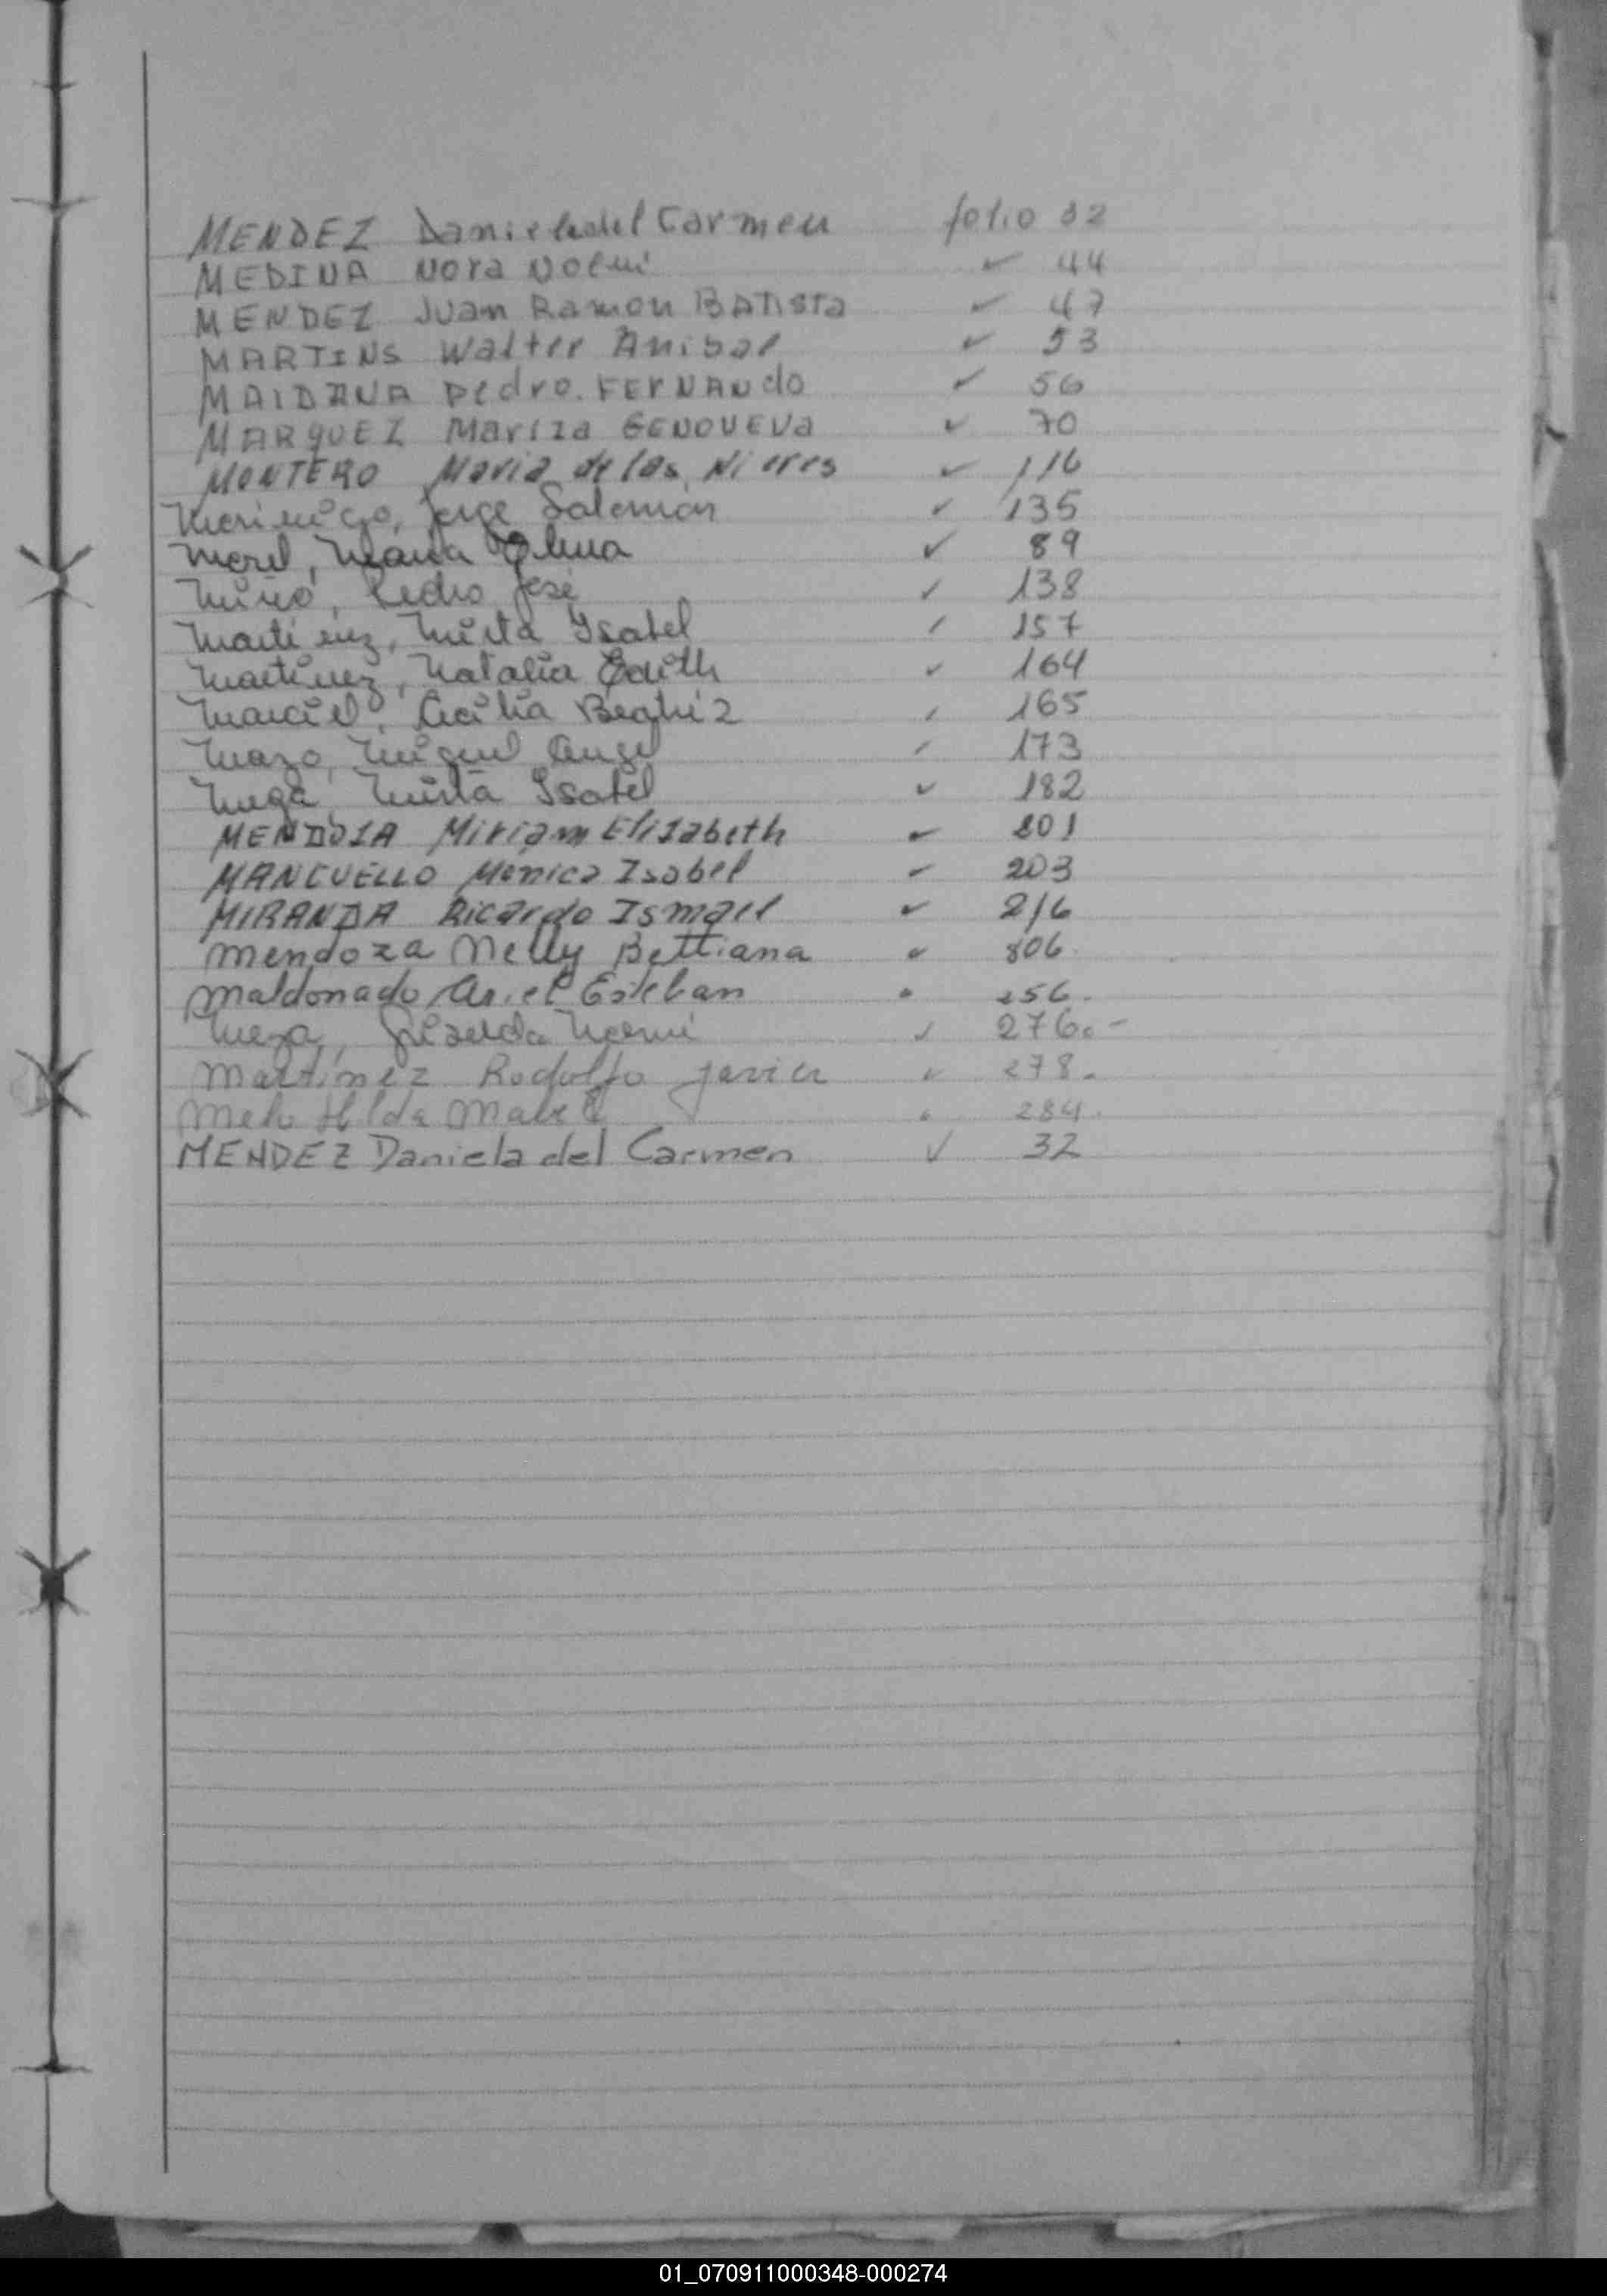 MENDEZ Daniela del Carmen folio 32
MEDINA Nora Noemi ✓ 44
MENDEZ Juan Ramon BATISTA ✓ 47
MARTINS Walter Anibal ✓ 53
MAIDANA Pedro. FERNANdo ✓ 56
MARQUEZ Mariza GENOVEVA ✓ 70
MONTERO Maria de las Nieves ✓ 116
Merinigo, Jorge Salomón ✓ 135
Morel, Maria ✓ 89
Miño, Pedro José ✓ 138
Martinez, Mirta Ysabel ✓ 157
Martinez, Natalia Edith ✓ 164
Maciel, Cecilia Beatriz ✓ 165
Mazo, Miguel Angel ✓ 173
Meza, Mirta Isabel ✓ 182
MENDOZA Miriam Elizabeth ✓ 201
MANCUELLO Monica Isabel ✓ 203
MIRANDA Ricardo Ismael ✓ 216
Mendoza Nelly Bettiana ✓ 806
Maldonado Ariel Esteban 256.
Meza, Noemi ✓ 276.-
Martinez Rodolfo Javier ✓ 278.
Melo Hilda Mabel 284.
MENDEZ Daniela del Carmen ✓ 32
01_070911000348-000274